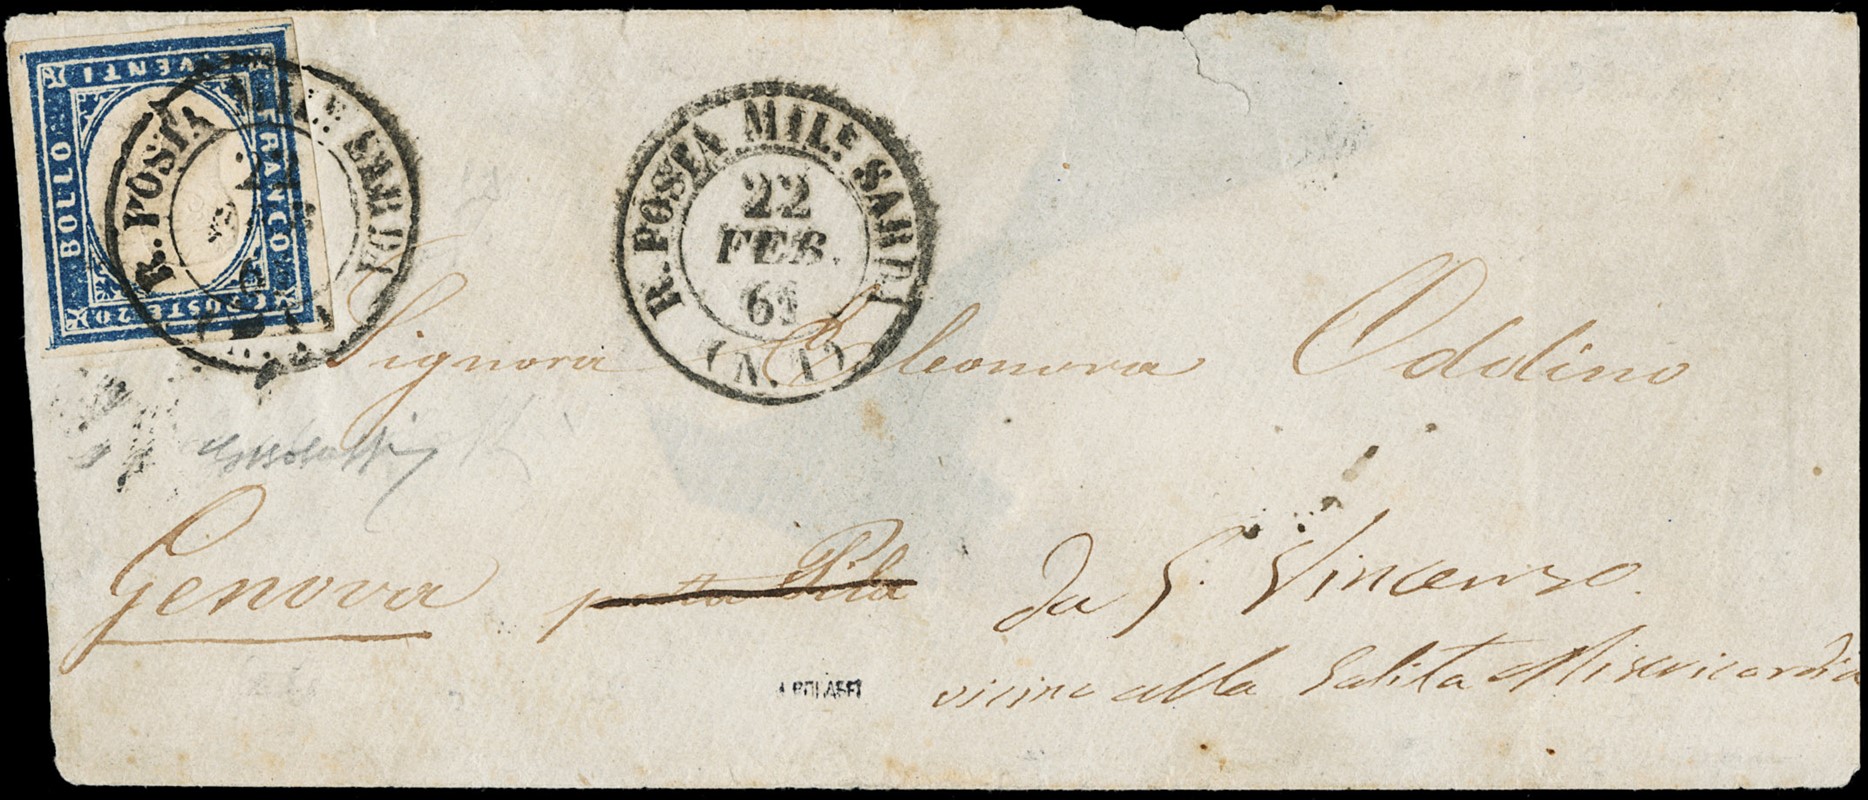 C. VENTI
BOLLO
FRANCO
C. POSTE 20
R. POSTA MIL.E SARDA
R. POSTA MIL.E SARDA
22
FEB.
61
Signora Eleonora Oddino
Genova posta Pila da S. Vincenzo
vicino alla Salita Misericordia
A. BOLAFFI